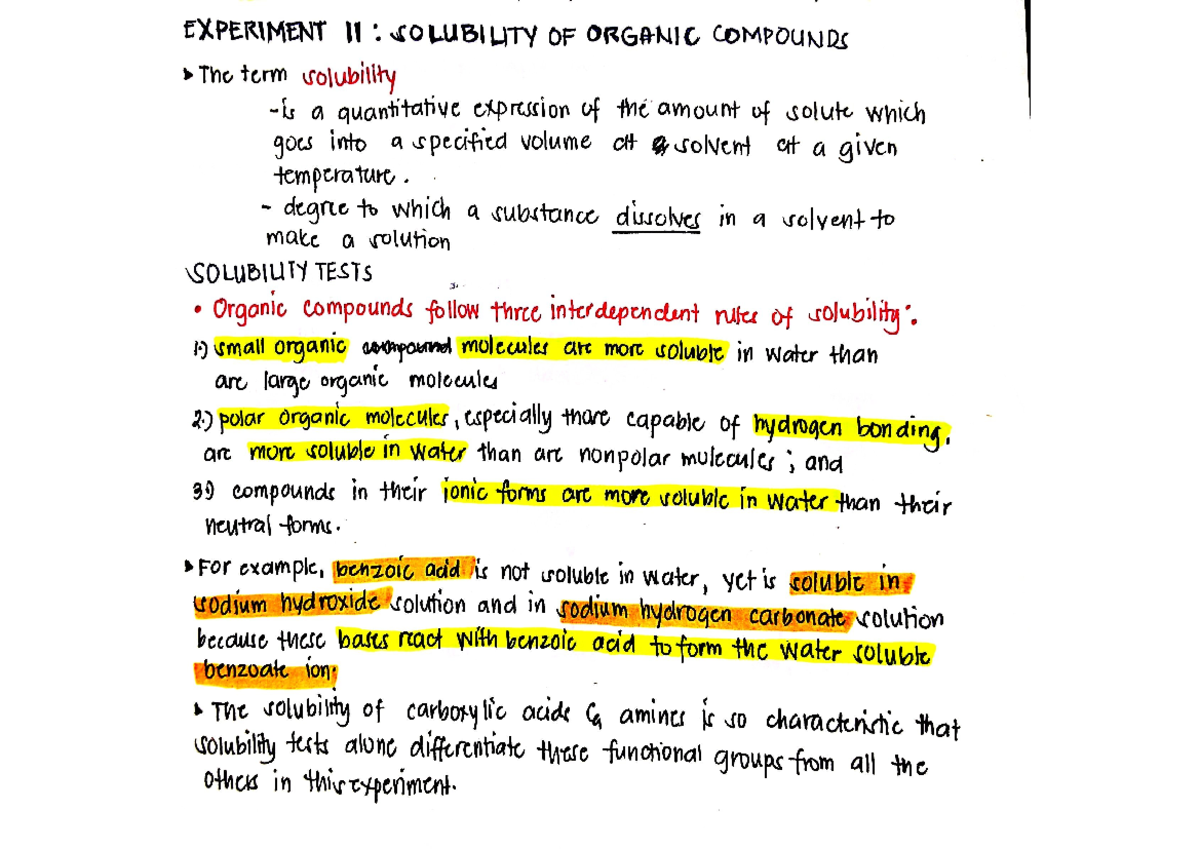 EXPERIMENT 11 : SOLUBILITY OF ORGANIC COMPOUNDS
The term solubility
-is a quantitative expression of the amount of solute which
goes into a specified volume of solvent at a given
temperature.
- degree to which a substance dissolves in a solvent to
make a solution
SOLUBILITY TESTS
• Organic compounds follow three interdependent rules of solubility:
1.) small organic compound molecules are more soluble in water than
are large organic molecules
2.) polar organic molecules, especially those capable of hydrogen bonding,
are more soluble in water than are nonpolar molecules ; and
3.) compounds in their ionic forms are more soluble in water than their
neutral forms.
For example, benzoic acid is not soluble in water, yet is soluble in
sodium hydroxide solution and in sodium hydrogen carbonate solution
because these bases react with benzoic acid to form the water soluble
benzoate ion:
The solubility of carboxylic acids & amines is so characteristic that
solubility tests alone differentiate these functional groups from all the
others in this experiment.